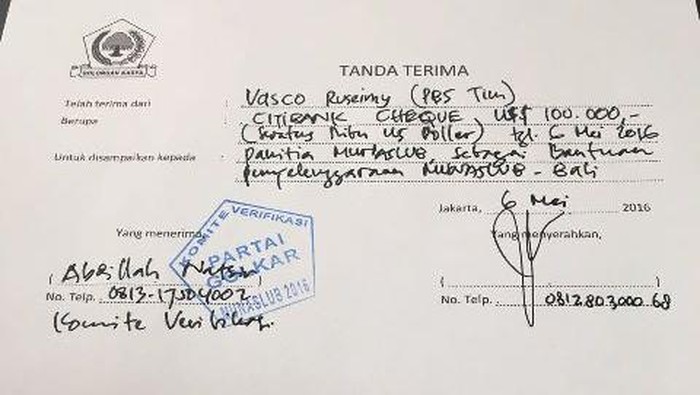 GOLONGAN KARYA
TANDA TERIMA
Telah terima dari : Vasco Ruseimy (PBS Tim)
Berupa : CITIBANK CHEQUE US$ 100.000,-
(Seratus Ribu US Dollar) tgl. 6 Mei 2016
Untuk disampaikan kepada : panitia MUNASLUB sebagai Bantuan
penyelenggaraan MUNASLUB - Bali
Jakarta, 6 Mei 2016
Yang menerima, Yang menyerahkan,
KOMITE VERIFIKASI
PARTAI
GOLKAR
MUNASLUB 2016
( Abdillah Natsir ) ( )
No. Telp. 0813-17504002 No. Telp. 0812.803.000.68
Komite Verifikasi